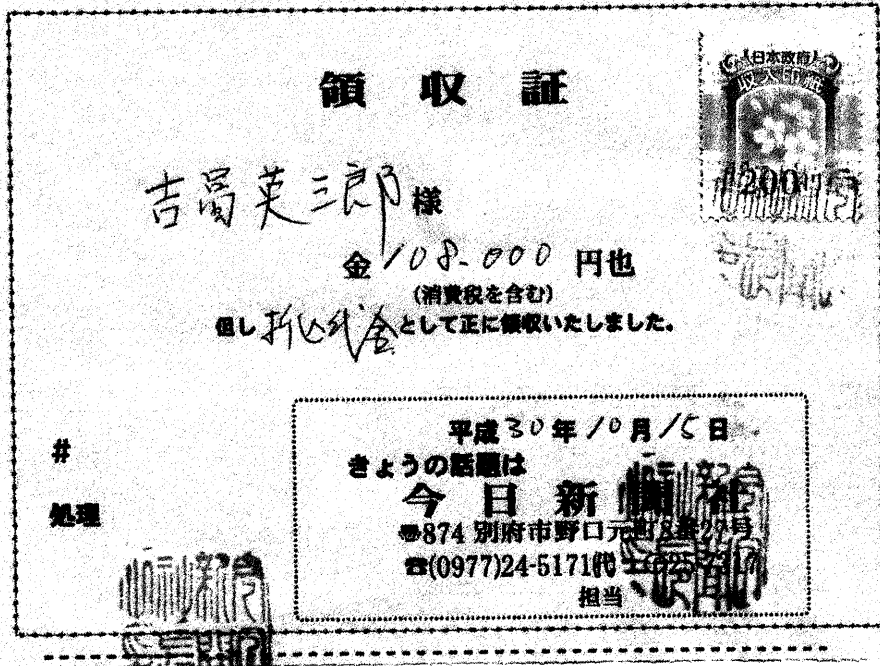 領収証
日本政府
収入印紙
200
吉冨英三郎様
金108-000円也
(消費税を含む)
但し折込代金として正に領収いたしました。
平成30年10月15日
#
きょうの話題は
処理
今日新聞社
〒874 別府市野口元町8番27号
☎(0977)24-5171(代)
担当